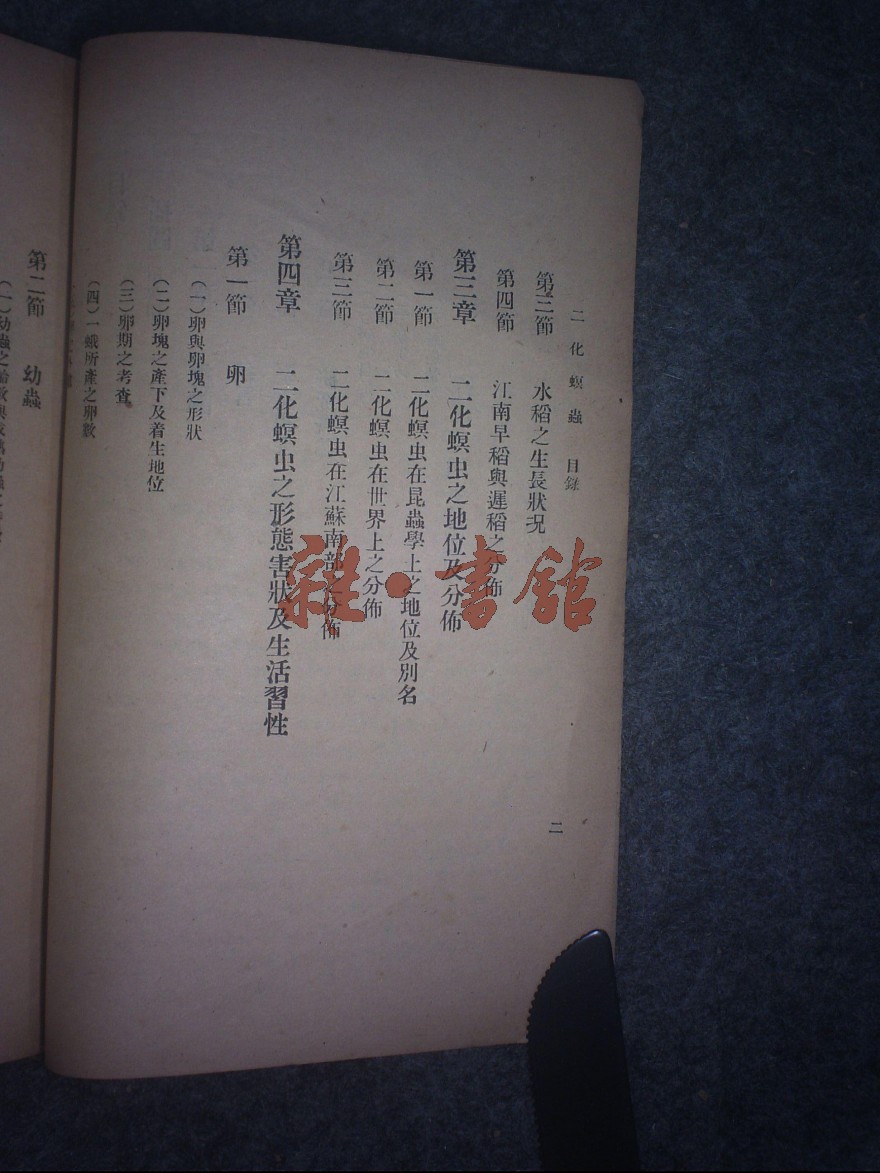 二化螟蟲 目錄
二
第三節 水稻之生長狀況
第四節 江南早稻與遲稻之分佈
第三章 二化螟虫之地位及分佈
第一節 二化螟虫在昆蟲學上之地位及別名
第二節 二化螟虫在世界上之分佈
第三節 二化螟虫在江蘇南部之分佈
第四章 二化螟虫之形態害狀及生活習性
第一節 卵
(一)卵與卵塊之形狀
(二)卵塊之產下及着生地位
(三)卵期之考查
(四)一蛾所產之卵數
第二節 幼蟲
(一)幼蟲之
雜·書館